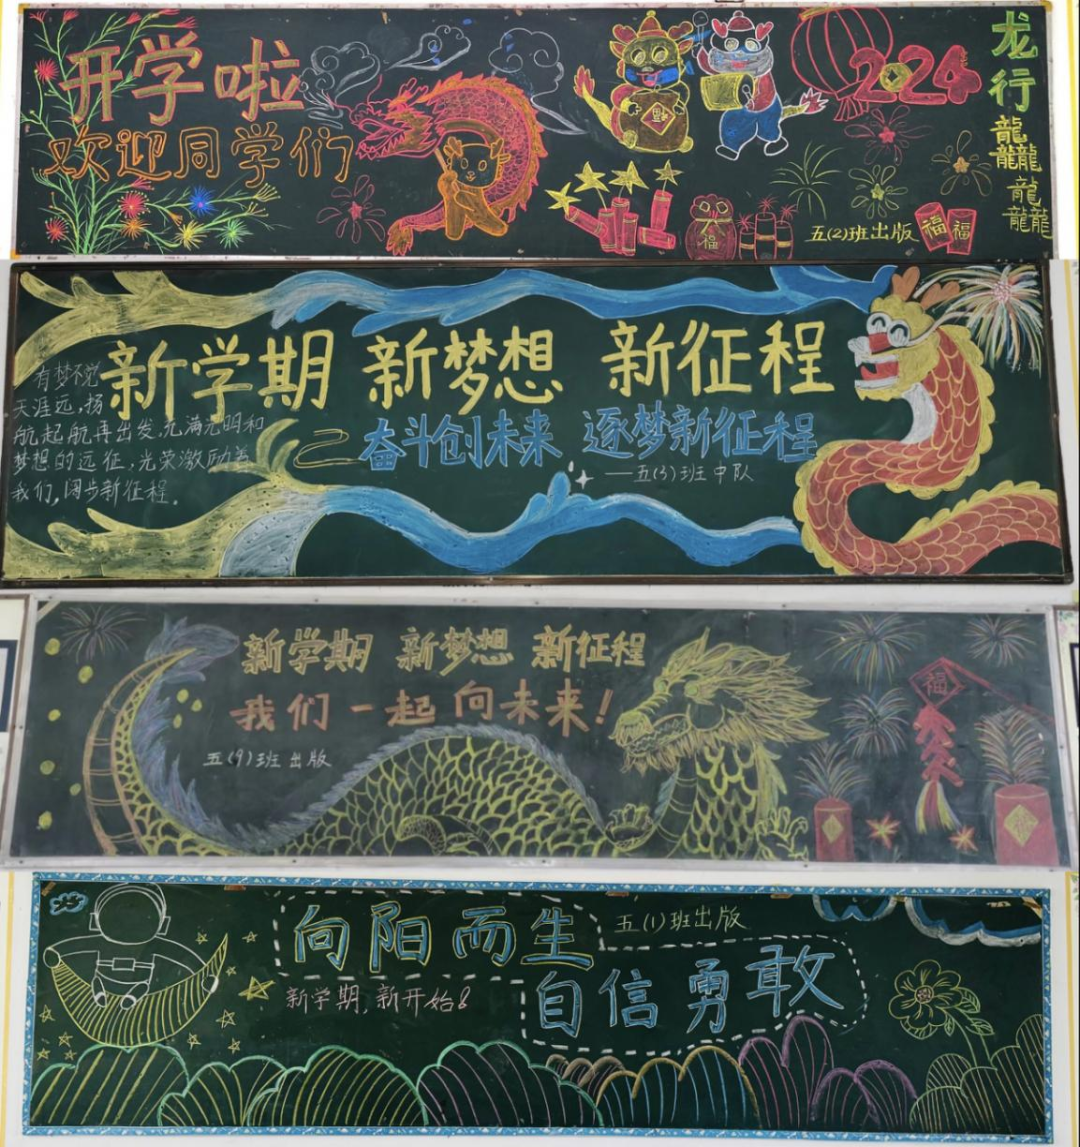 开学啦
欢迎同学们
2024
龙行
龘
龘
福
五(2)班出版
福福
新学期 新梦想 新征程
有梦不觉
天涯远,扬
航起航再出发,充满光明和
梦想的远征,光荣激励着
我们,阔步新征程。
奋斗创未来 逐梦新征程
——五(3)班中队
新学期 新梦想 新征程
我们一起向未来!
五(9)班出版
福
向阳而生
五(1)班出版
自信勇敢
新学期,新开始!